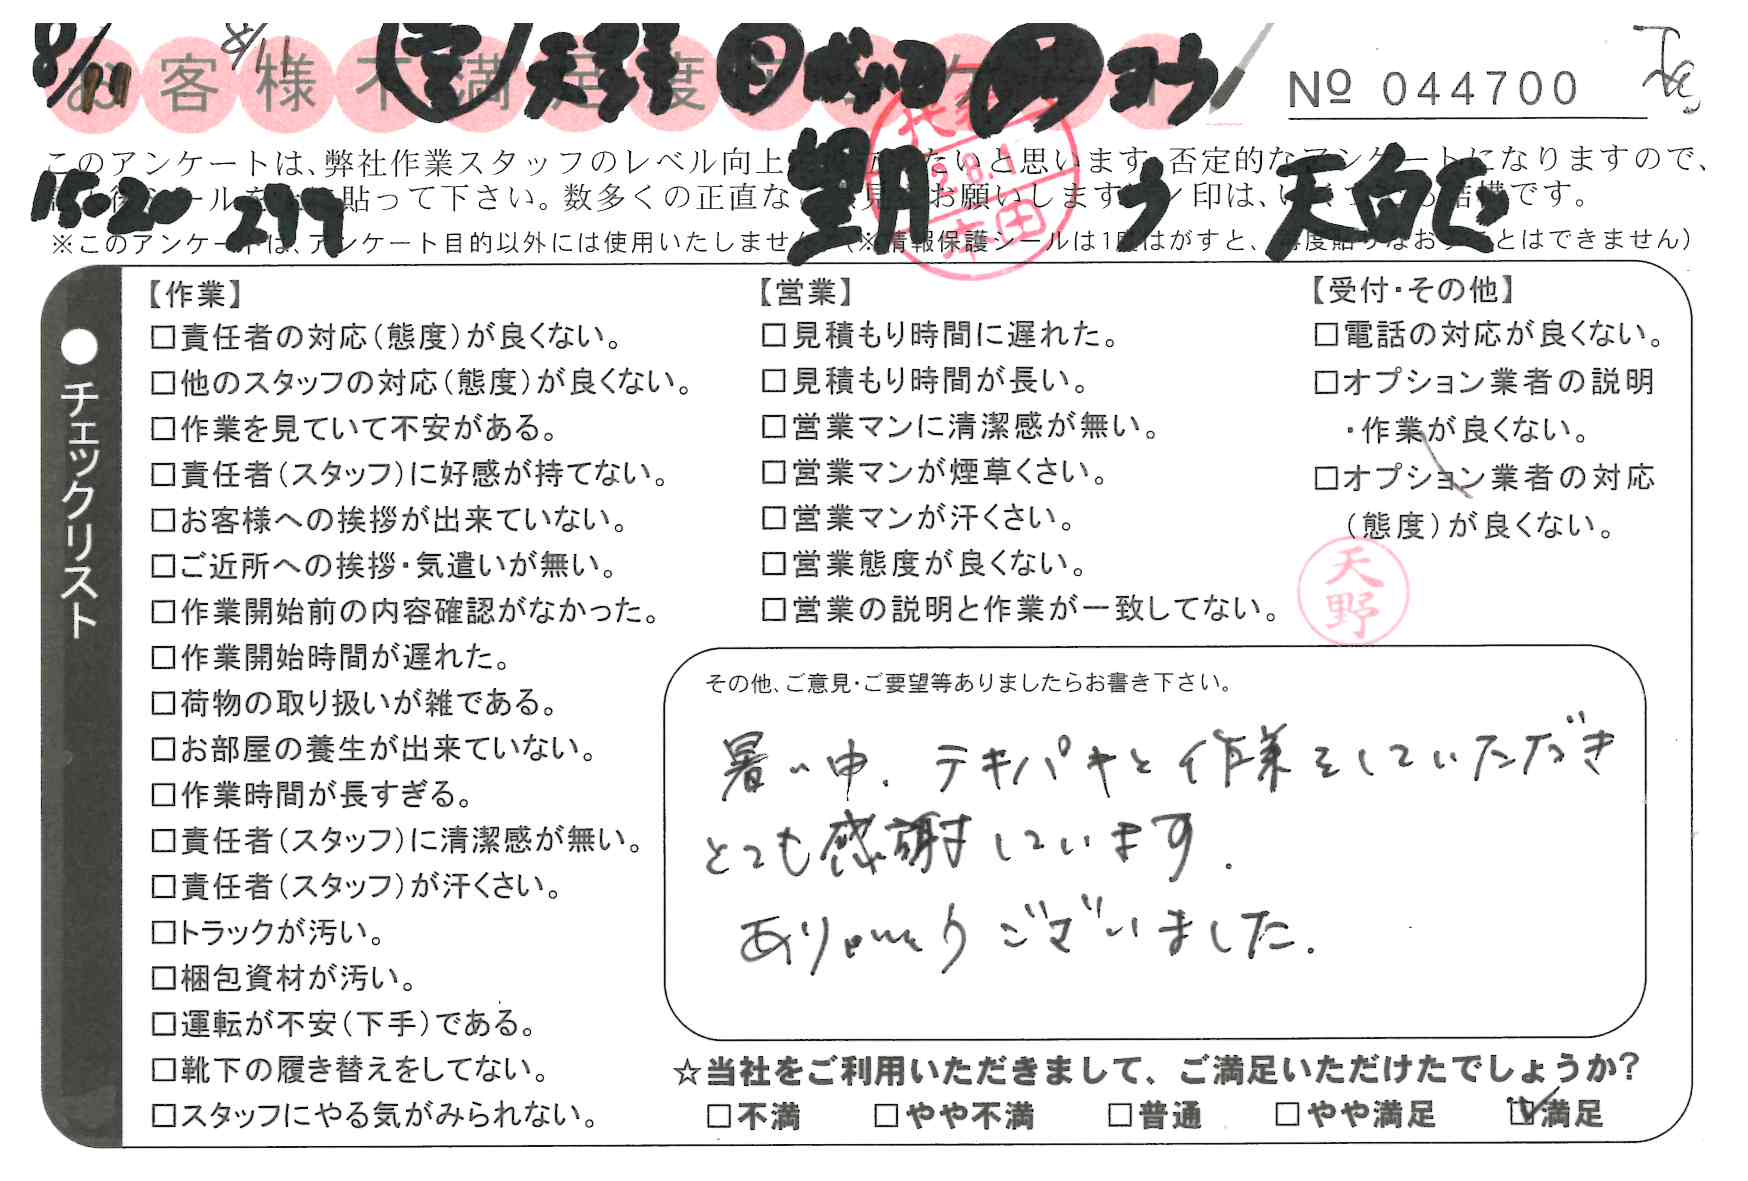 8/11 8/11
お客様不満足度
Nº 044700
このアンケートは、弊社作業スタッフのレベル向上 たいと思います。否定的なアンケートになりますので、
ル 貼って下さい。数多くの正直な 見 お願いします。 印は、 結構です。
15-20 299 望月
※このアンケートは、アンケート目的以外には使用いたしません。(※情報保護シールは1度はがすと、再度貼りなおすことはできません)
●チェックリスト
【作業】
□責任者の対応(態度)が良くない。
□他のスタッフの対応(態度)が良くない。
□作業を見ていて不安がある。
□責任者(スタッフ)に好感が持てない。
□お客様への挨拶が出来ていない。
□ご近所への挨拶・気遣いが無い。
□作業開始前の内容確認がなかった。
□作業開始時間が遅れた。
□荷物の取り扱いが雑である。
□お部屋の養生が出来ていない。
□作業時間が長すぎる。
□責任者(スタッフ)に清潔感が無い。
□責任者(スタッフ)が汗くさい。
□トラックが汚い。
□梱包資材が汚い。
□運転が不安(下手)である。
□靴下の履き替えをしてない。
□スタッフにやる気がみられない。
【営業】
□見積もり時間に遅れた。
□見積もり時間が長い。
□営業マンに清潔感が無い。
□営業マンが煙草くさい。
□営業マンが汗くさい。
□営業態度が良くない。
□営業の説明と作業が一致してない。
【受付・その他】
□電話の対応が良くない。
□オプション業者の説明
・作業が良くない。
□オプション業者の対応
(態度)が良くない。
天野
その他、ご意見・ご要望等ありましたらお書き下さい。
暑い中、テキパキと作業をしていただき
とても感謝しています。
ありがとうございました。
☆当社をご利用いただきまして、ご満足いただけたでしょうか?
□不満 □やや不満 □普通 □やや満足 ☑満足